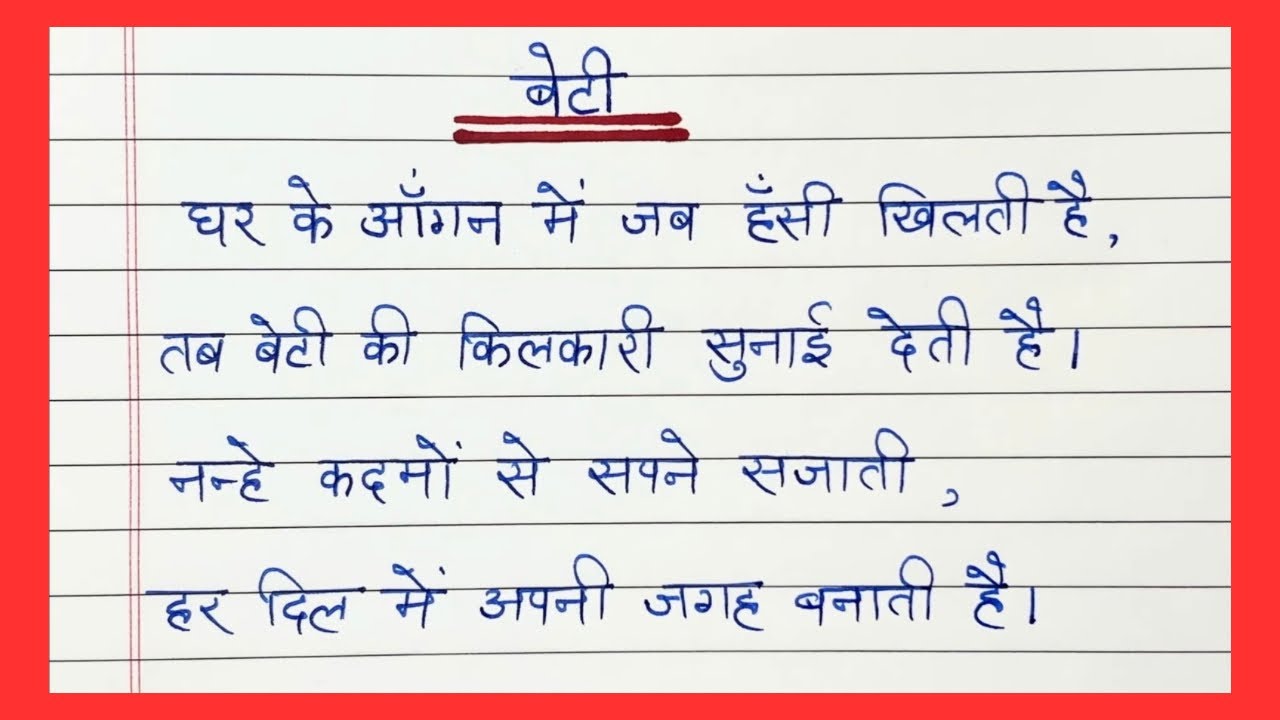 बेटी
घर के आँगन में जब हँसी खिलती है,
तब बेटी की किलकारी सुनाई देती है।
नन्हे कदमों से सपने सजाती,
हर दिल में अपनी जगह बनाती है।